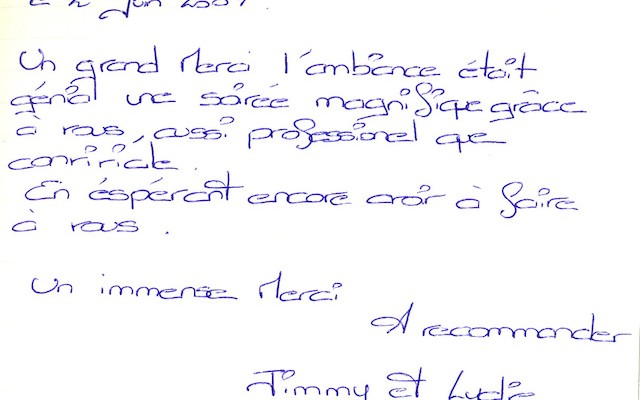 Juin
Un grand Merci l'ambiance était
génial une soirée magnifique grâce
à vous, aussi professionel que
convivicle.
En éspérant encore avoir à faire
à vous.
Un immense Merci
A recommander
Jimmy et